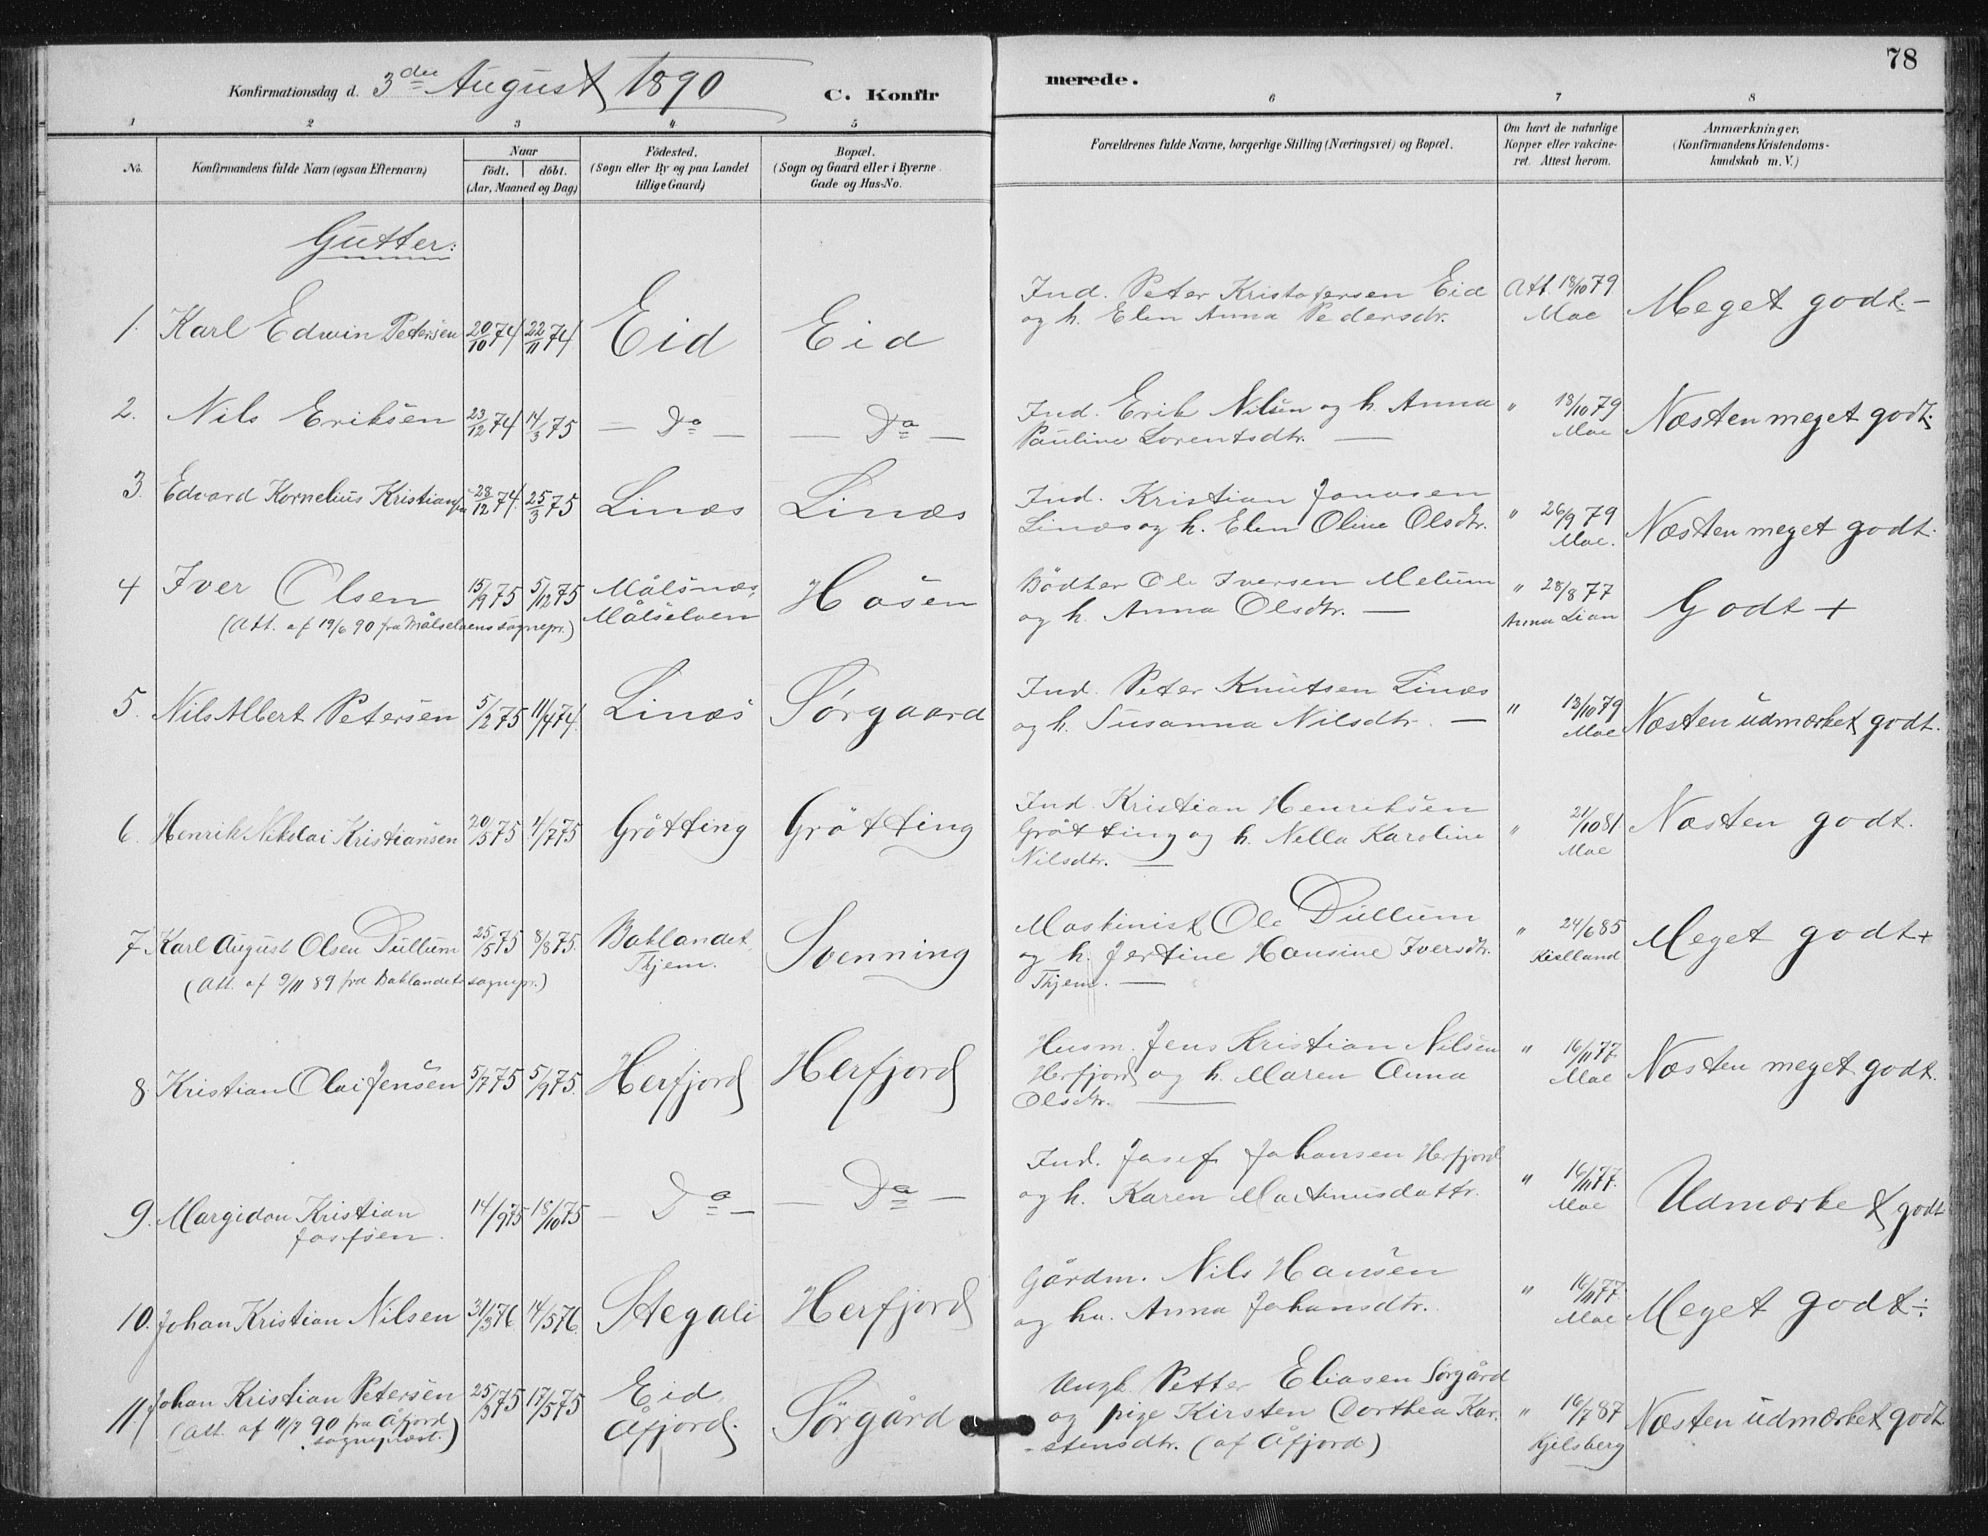 78
Konfirmationsdag d. 3die August 1890
C. Konfirmerede.
1 2 3 4 5 6 7 8
No. Konfirmandens fulde Navn (ogsaa Efternavn) Naar født. døbt. (Aar, Maaned og Dag) Fødested. (Sogn eller By og paa Landet tillige Gaard) Bopæl. (Sogn og Gaard eller i Byerne Gade og Hus-No. Forældrenes fulde Navne, borgerlige Stilling (Næringsvei) og Bopæl. Om havt de naturlige Kopper eller vakcineret. Attest herom. Anmærkninger, (Konfirmandens Kristendomskundskab m. V.)
Gutter:
1. Karl Edwin Petersen 20/10 74 22/11 74 Eid Eid Ind. Peter Kristofersen Eid Att. 18/10 79 Meget godt -
og h. Elen Anna Pedersdtr. Moe
2. Nils Eriksen 23/12 74 14/3 75 — Do — — Do — Ind. Erik Nilsen og h. Anna " 18/10 79 Næsten meget godt.
Pauline Lorentsdtr. — Moe
3. Edvard Kornelius Kristiansen 28/12 74 25/3 75 Linæs Linæs Ind. Kristian Jonasen " 26/9 79 Næsten meget godt.
Linæs og h. Elen Oline Olsdtr. Moe.
4 Iver Olsen 15/9 75 5/12 75 Målsnæs, Hosen Bödker Ole Iversen Melum " 28/8 77 Godt +
(Att. af 19/6 90 fra Målselvens sognepr.) Målselven og h. Anna Olsdtr. — Anna Lian
5. Nils Albert Petersen 5/2 75 11/4 74. Linæs Sørgaard Ind. Peter Knutsen Linæs " 13/10 79 Næsten udmærket godt.
og h. Susanna Nilsdtr. — Moe
6. Henrik Nikolai Kristiansen 20/5 75 1/7 75 Grötting Grötting Ind. Kristian Henriksen " 21/10 81 Næsten godt.
Grötting og h. Nella Karoline Moe
Nilsdtr. —
7 Karl August Olsen Dullum 25/5 75 8/8 75. Baklandet Svenning Maskinist Ole Dullum " 24/6 85 Meget godt +
Thjem. og h. Jertine Hansine Iversdtr. Kielland
(Att. af 9/11 89 fra Baklandets sognepr.) Thjem. —
8 Kristian Olai Jensen 5/7 75 5/9 75. Herfjord Herfjord Husm. Jens Kristian Nilsen " 16/11 77. Næsten meget godt.
Herfjord og h. Maren Anna Moe
Olsdtr. —
9. Margidon Kristian 14/9 75 18/10 75 — Do — — Do — Ind. Josef Johansen Herfjord " 16/11 77. Udmærket godt
Josefsen. og h. Karen Martinusdattr. Moe
10. Johan Kristian Nilsen 31/3 76. 14/5 76. Stegali Herfjord Gårdm. Nils Hansen " 16/11 77. Meget godt ÷
og hu. Anna Johansdtr. Moe
11 Johan Kristian Petersen 25/3 75 17/5 75 Eid, Sørgård Ungk. Petter Eliasen Sørgård " 16/7 87 Næsten udmærket godt
(Att. af 11/7 90 fra Åfjord Åfjord. og pige Kirsten Dorthea Kar- Kjelsberg
sognepræst.) -stensdtr. (af Åfjord)